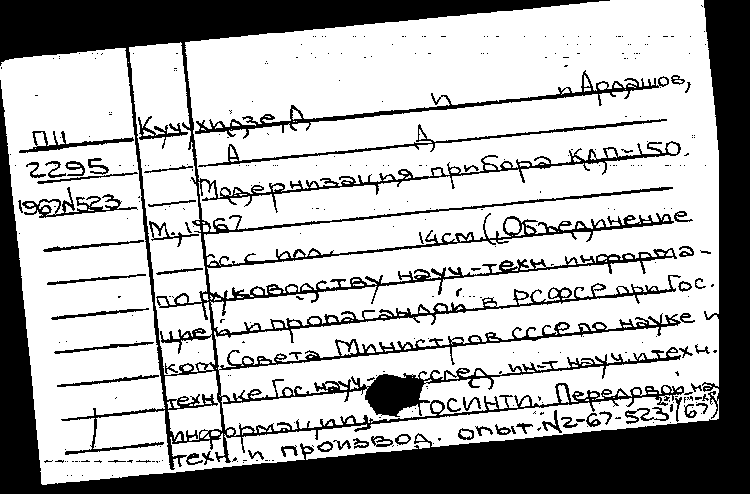 П11
2295
1967 №523
Кучухидзе, А п п Ардашов,
А А
Модернизация прибора КДП-150.
М., 1967
3с. с илл. 14см. („Объединение
по руководству науч.-техн. информа-
цией и пропагандой в РСФСР при Гос.
ком. Совета Министров СССР по науке и
технике. Гос. науч. исслед. ин-т науч. и техн.
информации. ГОСИНТИ; Передовой
техн. и производ. опыт. №2-67-523/(67)